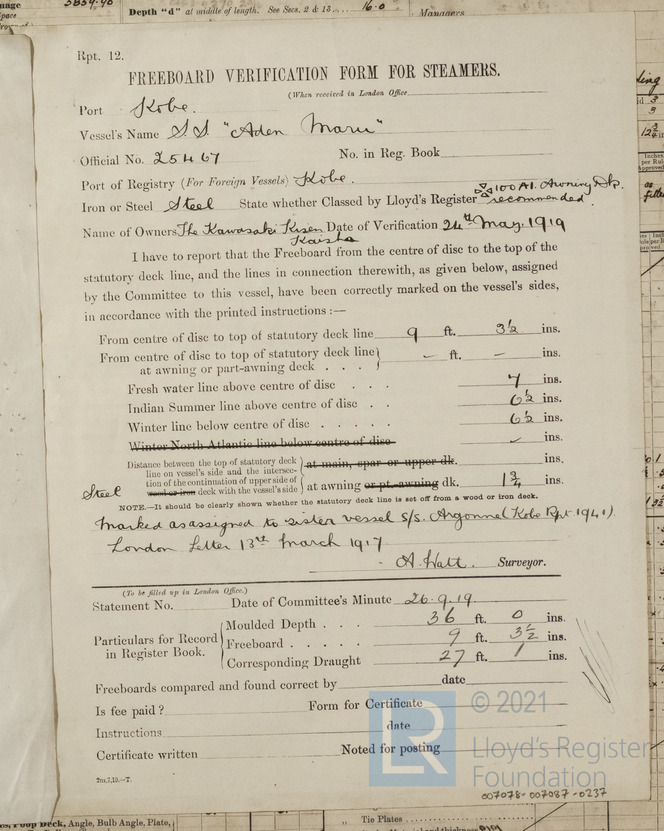 Depth "d" at middle of length. See Secs. 2 & 13... 16.0 Managers
Rpt. 12.
FREEBOARD VERIFICATION FORM FOR STEAMERS.
(When received in London Office
Port Kobe.
Vessel's Name S.S "Aden Maru"
Official No. 25467 No. in Reg. Book
Port of Registry (For Foreign Vessels) Kobe.
Iron or Steel Steel State whether Classed by Lloyd's Register 100 A1. Awning Dk. recommended.
Name of Owners The Kawasaki Kisen Kaisha Date of Verification 24th May. 1919
I have to report that the Freeboard from the centre of disc to the top of the
statutory deck line, and the lines in connection therewith, as given below, assigned
by the Committee to this vessel, have been correctly marked on the vessel's sides,
in accordance with the printed instructions :—
From centre of disc to top of statutory deck line 9 ft. 3½ ins.
From centre of disc to top of statutory deck line
at awning or part-awning deck . . . – ft. – ins.
Fresh water line above centre of disc . . . 7 ins.
Indian Summer line above centre of disc . . 6½ ins.
Winter line below centre of disc . . . . . 6½ ins.
Winter North Atlantic line below centre of disc ins.
Distance between the top of statutory deck
line on vessel's side and the intersec-
tion of the continuation of upper side of
Steel wood or iron deck with the vessel's side
at main, spar or upper dk. ins.
at awning or pt.-awning dk. 1¾ ins.
NOTE.—It should be clearly shown whether the statutory deck line is set off from a wood or iron deck.
Marked as assigned to sister vessel S/S. Argonne (Kobe Rpt. 1941).
London Letter 13th March 1917
A. Watt. Surveyor.
(To be filled up in London Office.)
Statement No. Date of Committee's Minute 26.9.19.
Particulars for Record
in Register Book.
Moulded Depth . . . 36 ft. 0 ins.
Freeboard . . . . . 9 ft. 3½ ins.
Corresponding Draught 27 ft. 1 ins.
Freeboards compared and found correct by date
Is fee paid? Form for Certificate
Instructions date
Certificate written Noted for posting
2m,7,10.—T.
LR
© 2021
Lloyd's Register
Foundation
007078-007087-0237
Poop Deck, Angle, Bulb Angle, Plate,
" Tie Plates